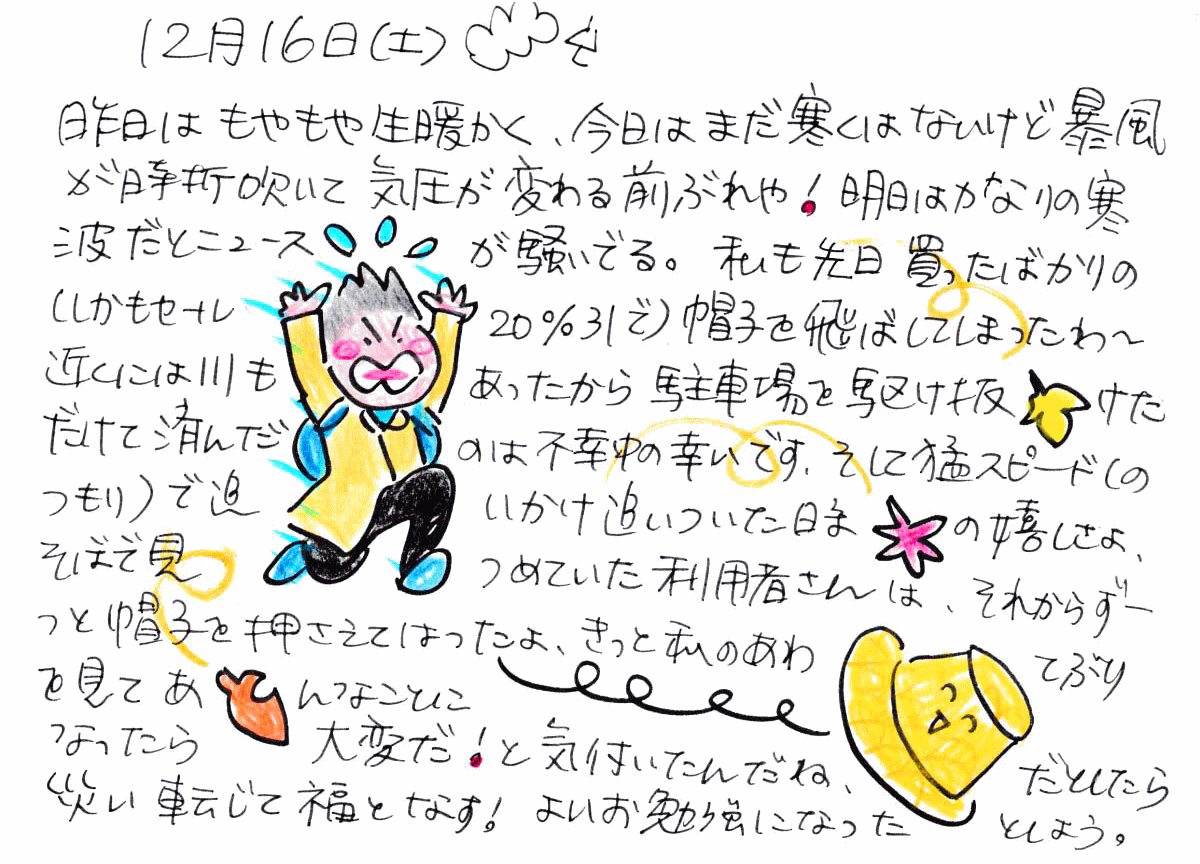 12月16日(土)
昨日はもやもや生暖かく、今日はまだ寒くはないけど暴風
が時折吹いて気圧が変わる前ぶれや!明日はかなりの寒
波だとニュースが騒いでる。私も先日買ったばかりの
(しかもセール20%引で)帽子を飛ばしてしまったわ〜
近くには川もあったから駐車場を駆け抜けた
だけで済んだのは不幸中の幸いです、そして猛スピード(の
つもり)で追いかけ追いついた時の嬉しさよ、
そばで見つめていた利用者さんは、それからずー
っと帽子を押さえてはったよ、きっと私のあわてぶり
を見てあんなことに
なったら大変だ!と気付いたんだね、だとしたら
災い転じて福となす!よいお勉強になったとしよう。